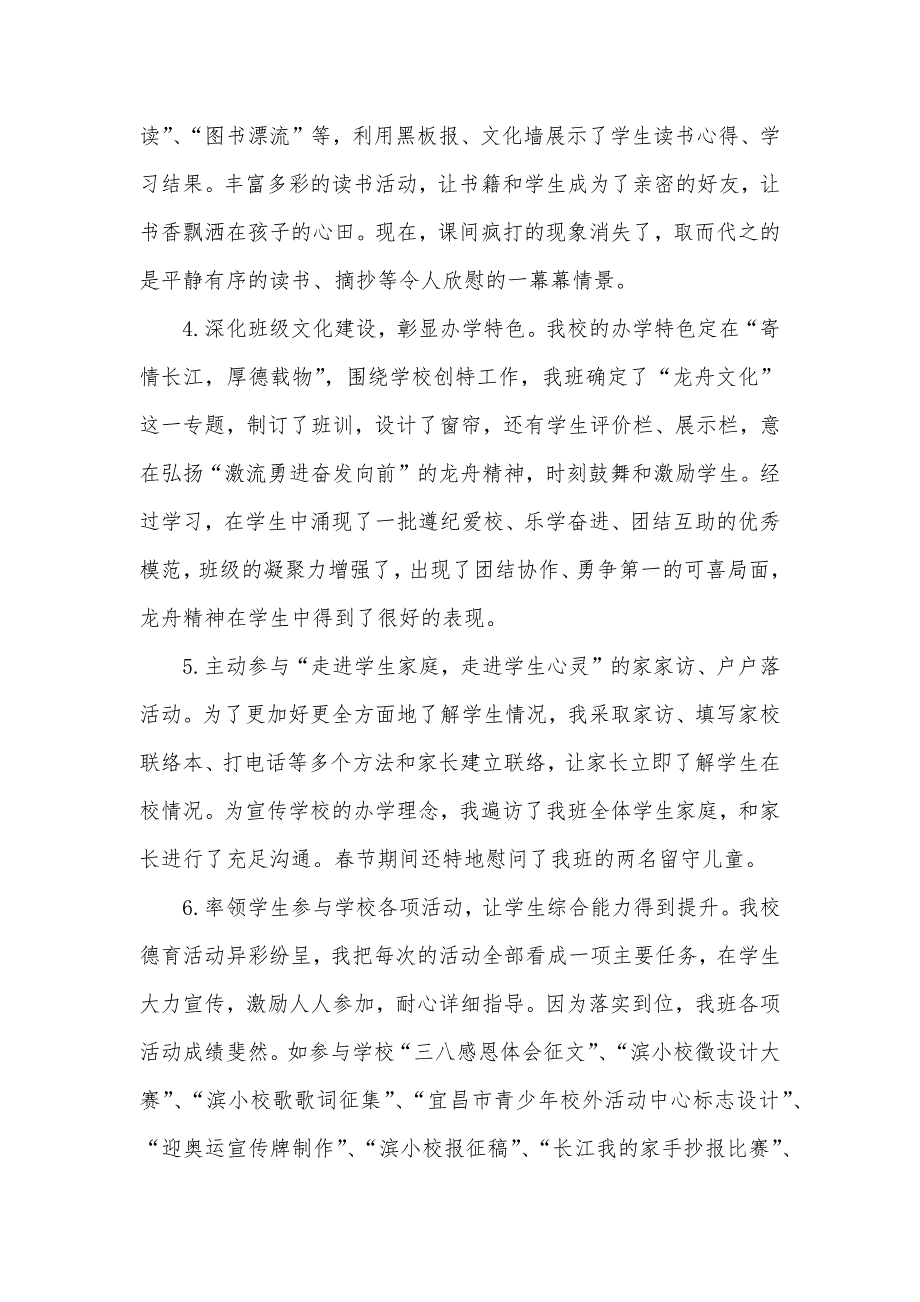 读”、“图书漂流”等，利用黑板报、文化墙展示了学生读书心得、学
习结果。丰富多彩的读书活动，让书籍和学生成为了亲密的好友，让
书香飘洒在孩子的心田。现在，课间疯打的现象消失了，取而代之的
是平静有序的读书、摘抄等令人欣慰的一幕幕情景。
4.深化班级文化建设，彰显办学特色。我校的办学特色定在“寄
情长江，厚德载物”，围绕学校创特工作，我班确定了“龙舟文化”
这一专题，制订了班训，设计了窗帘，还有学生评价栏、展示栏，意
在弘扬“激流勇进奋发向前”的龙舟精神，时刻鼓舞和激励学生。经
过学习，在学生中涌现了一批遵纪爱校、乐学奋进、团结互助的优秀
模范，班级的凝聚力增强了，出现了团结协作、勇争第一的可喜局面，
龙舟精神在学生中得到了很好的表现。
5.主动参与“走进学生家庭，走进学生心灵”的家家访、户户落
活动。为了更加好更全方面地了解学生情况，我采取家访、填写家校
联络本、打电话等多个方法和家长建立联络，让家长立即了解学生在
校情况。为宣传学校的办学理念，我遍访了我班全体学生家庭，和家
长进行了充足沟通。春节期间还特地慰问了我班的两名留守儿童。
6.率领学生参与学校各项活动，让学生综合能力得到提升。我校
德育活动异彩纷呈，我把每次的活动全部看成一项主要任务，在学生
大力宣传，激励人人参加，耐心详细指导。因为落实到位，我班各项
活动成绩斐然。如参与学校“三八感恩体会征文”、“滨小校徽设计大
赛”、“滨小校歌歌词征集”、“宜昌市青少年校外活动中心标志设计”、
“迎奥运宣传牌制作”、“滨小校报征稿”、“长江我的家手抄报比赛”、